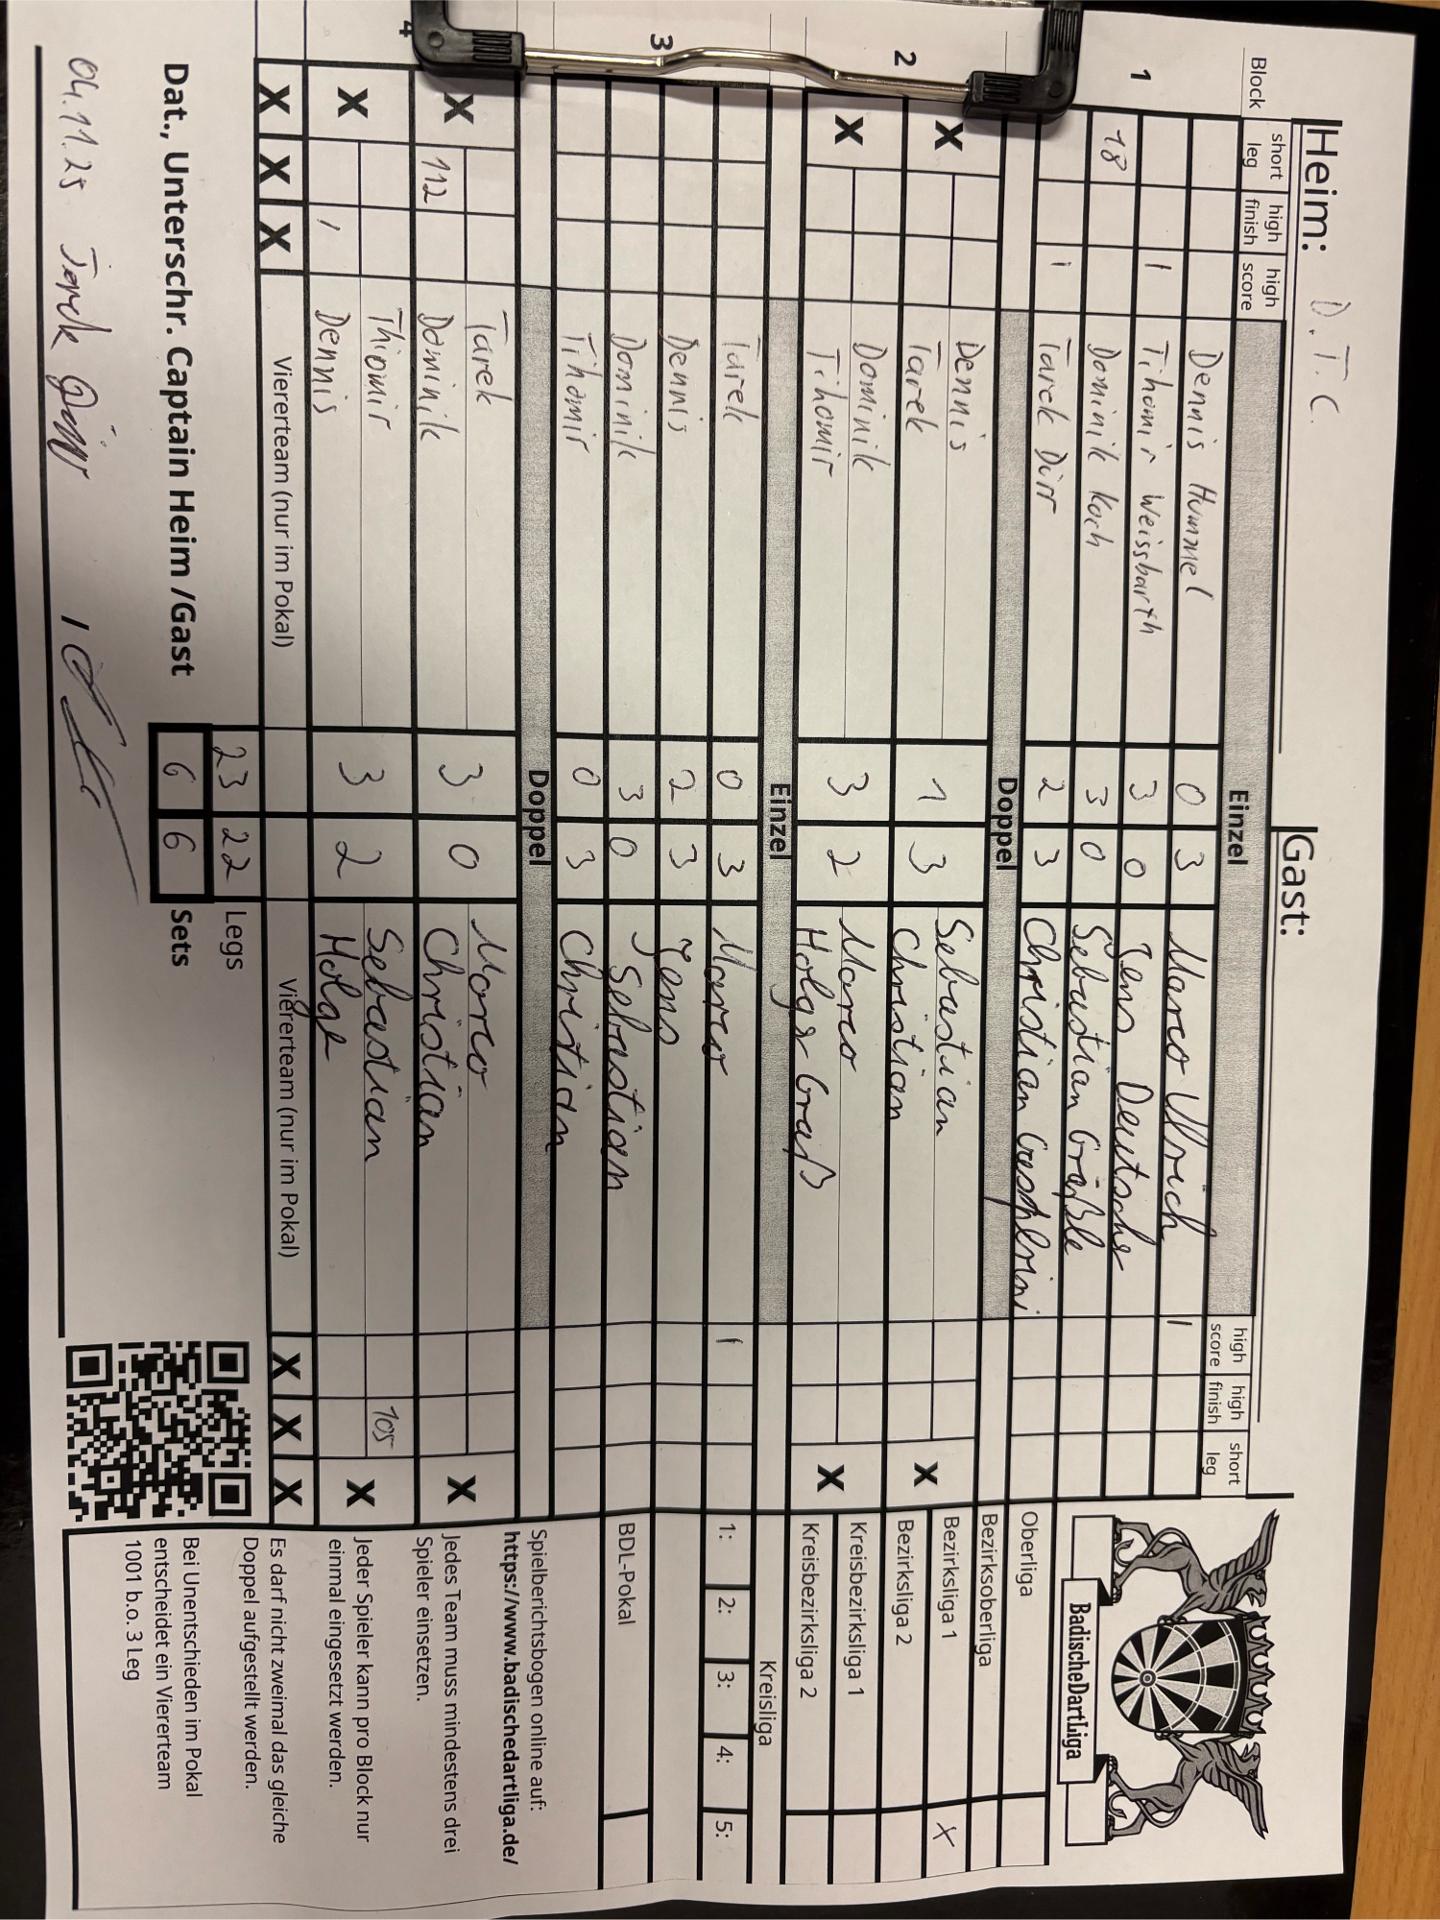 Heim: D.T.C.
Gast:
Block
short leg
high finish
high score
Einzel
high score
high finish
short leg
1
Dennis Hummel 0 3 Marco Ullrich 1
1 Tihomir Weissbarth 3 0 Jens Deutscher
18 Dominik Koch 3 0 Sebastian Gräßle
1 Tarek Dürr 2 3 Christian
Doppel
2
X Dennis 1 3 Sebastian X
Tarek Christian
X Dominik 3 2 Marco X
Tihomir Holger Graß
Einzel
3
Tarek 0 3 Marco 1
Dennis 2 3 Jens
Dominik 3 0 Sebastian
Tihomir 0 3 Christian
Doppel
4
X Tarek 3 0 Marco X
112 Dominik Christian
X Thiomir 3 2 Sebastian 105 X
1 Dennis Holger
X X X Viererteam (nur im Pokal) Viererteam (nur im Pokal) X X X
23 22 Legs
6 6 Sets
Dat., Unterschr. Captain Heim /Gast
04.11.25 Tarek Dürr /
BadischeDartLiga
Oberliga
Bezirksoberliga
Bezirksliga 1 X
Bezirksliga 2
Kreisbezirksliga 1
Kreisbezirksliga 2
Kreisliga
1: 2: 3: 4: 5:
BDL-Pokal
Spielberichtsbogen online auf:
https://www.badischedartliga.de/
Jedes Team muss mindestens drei
Spieler einsetzen.
Jeder Spieler kann pro Block nur
einmal eingesetzt werden.
Es darf nicht zweimal das gleiche
Doppel aufgestellt werden.
Bei Unentschieden im Pokal
entscheidet ein Viererteam
1001 b.o. 3 Leg